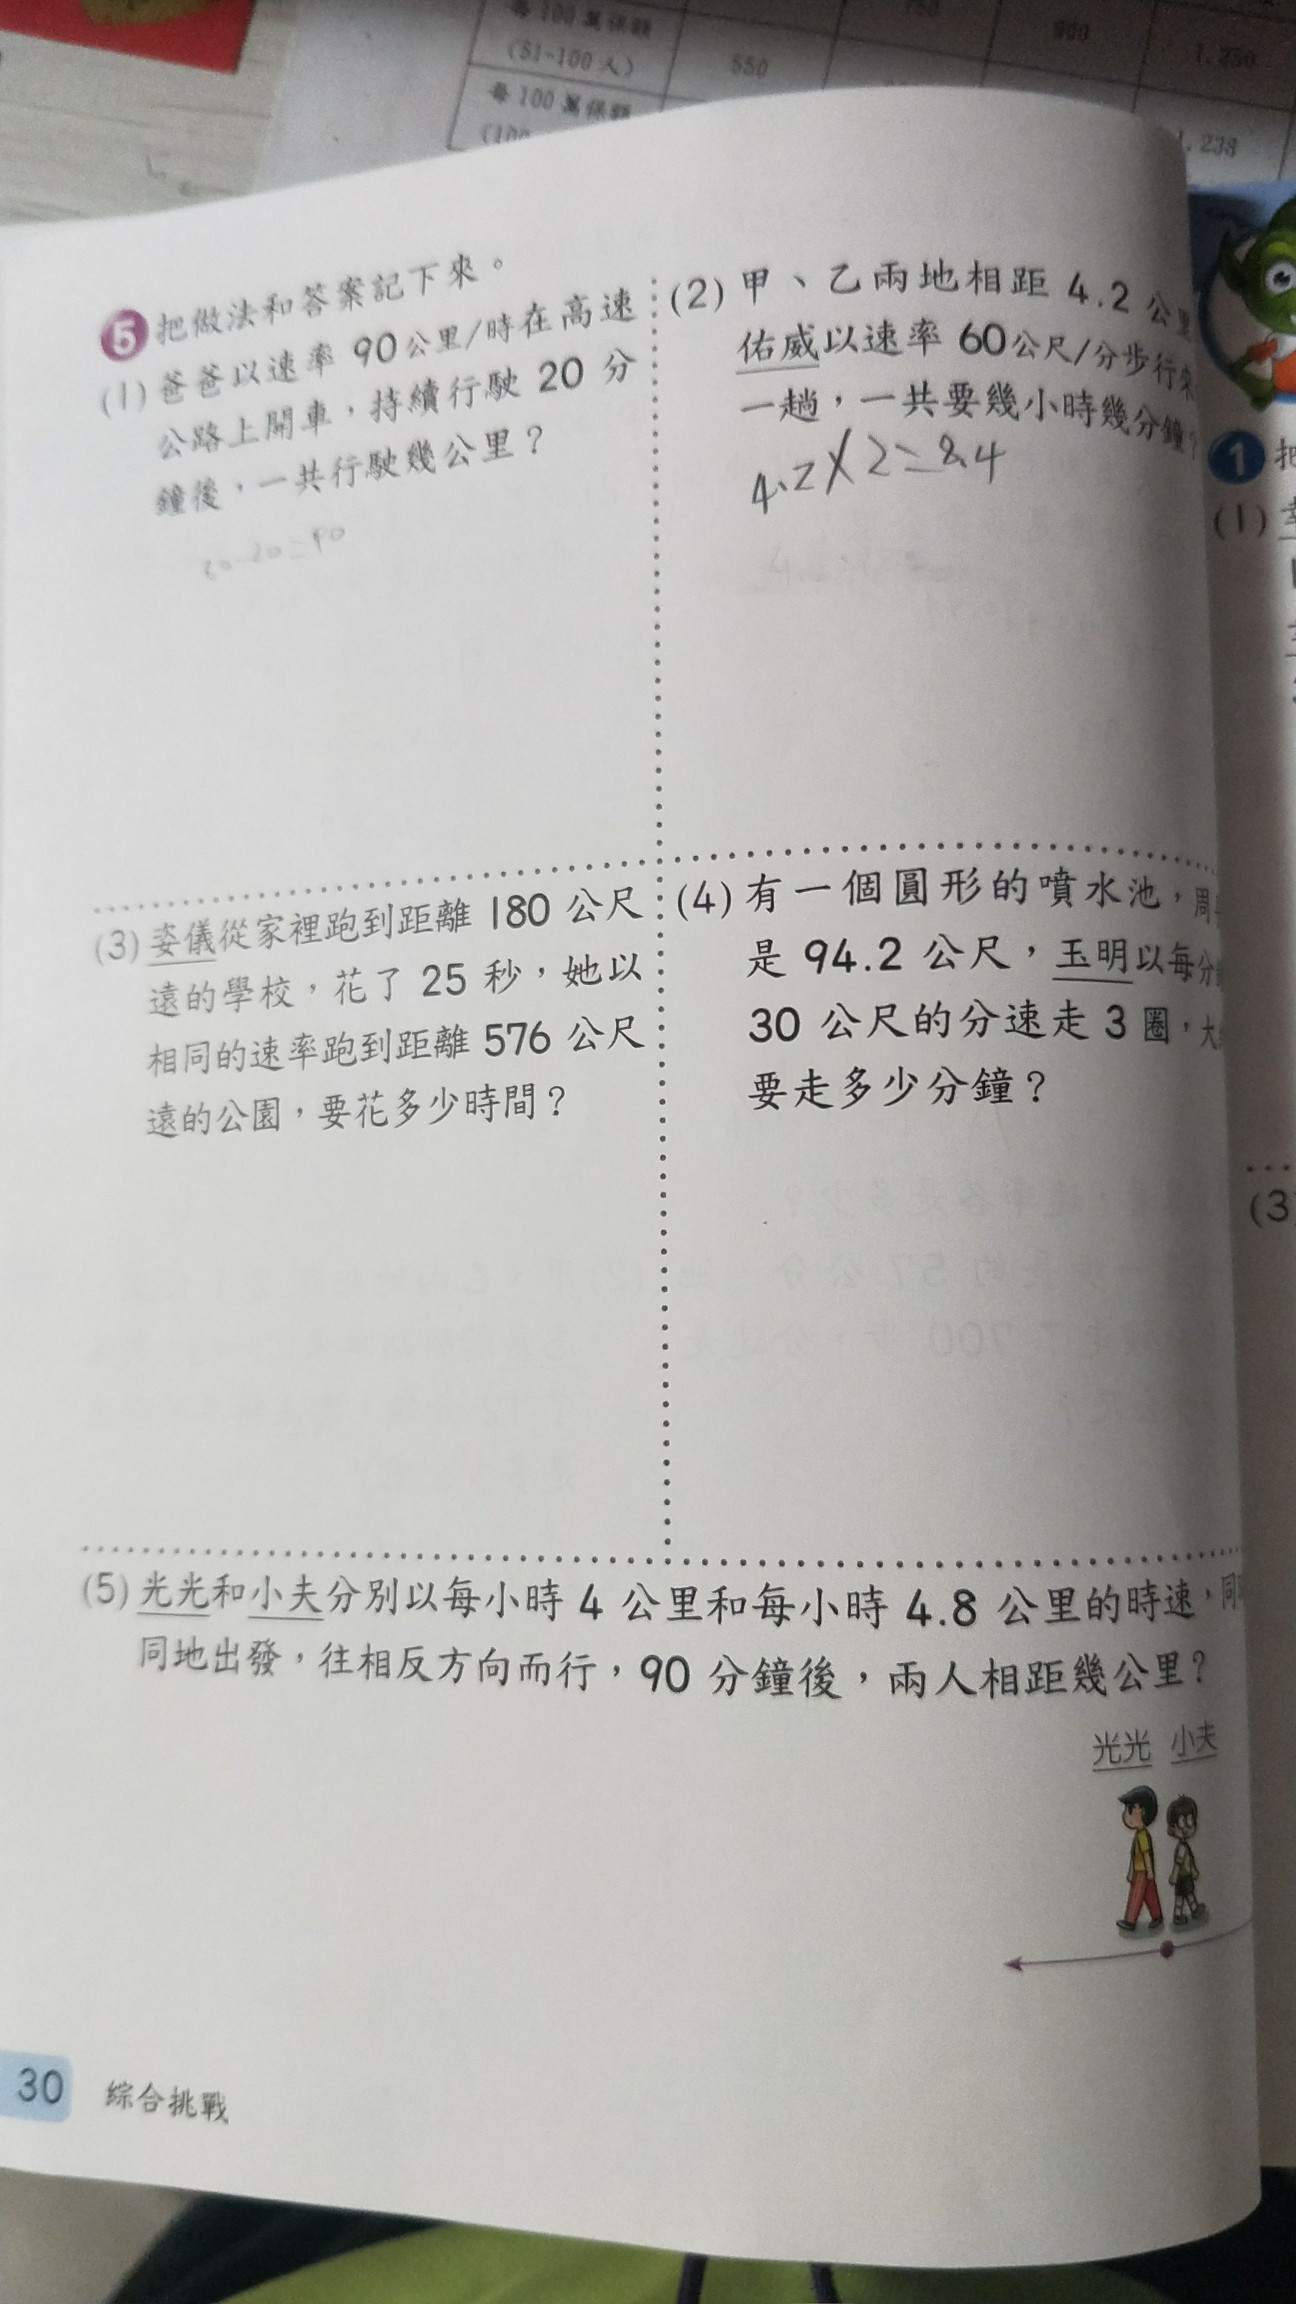 每100萬保額
(51-100人)
550
750
900
1,250
每100萬保額
(100
1,238
5 把做法和答案記下來。
(1) 爸爸以速率 90公里/時在高速
公路上開車，持續行駛 20 分
鐘後，一共行駛幾公里？
(2) 甲、乙兩地相距 4.2 公里
佑威以速率 60公尺/分步行來
一趟，一共要幾小時幾分鐘？
4.2×2=8.4
(3) 姿儀從家裡跑到距離 180 公尺
遠的學校，花了 25 秒，她以
相同的速率跑到距離 576 公尺
遠的公園，要花多少時間？
(4) 有一個圓形的噴水池，周
是 94.2 公尺，玉明以每分
30 公尺的分速走 3 圈，大
要走多少分鐘？
(5) 光光和小夫分別以每小時 4 公里和每小時 4.8 公里的時速，同
同地出發，往相反方向而行，90 分鐘後，兩人相距幾公里？
光光 小夫
30 綜合挑戰
1 把
(1)
(3)